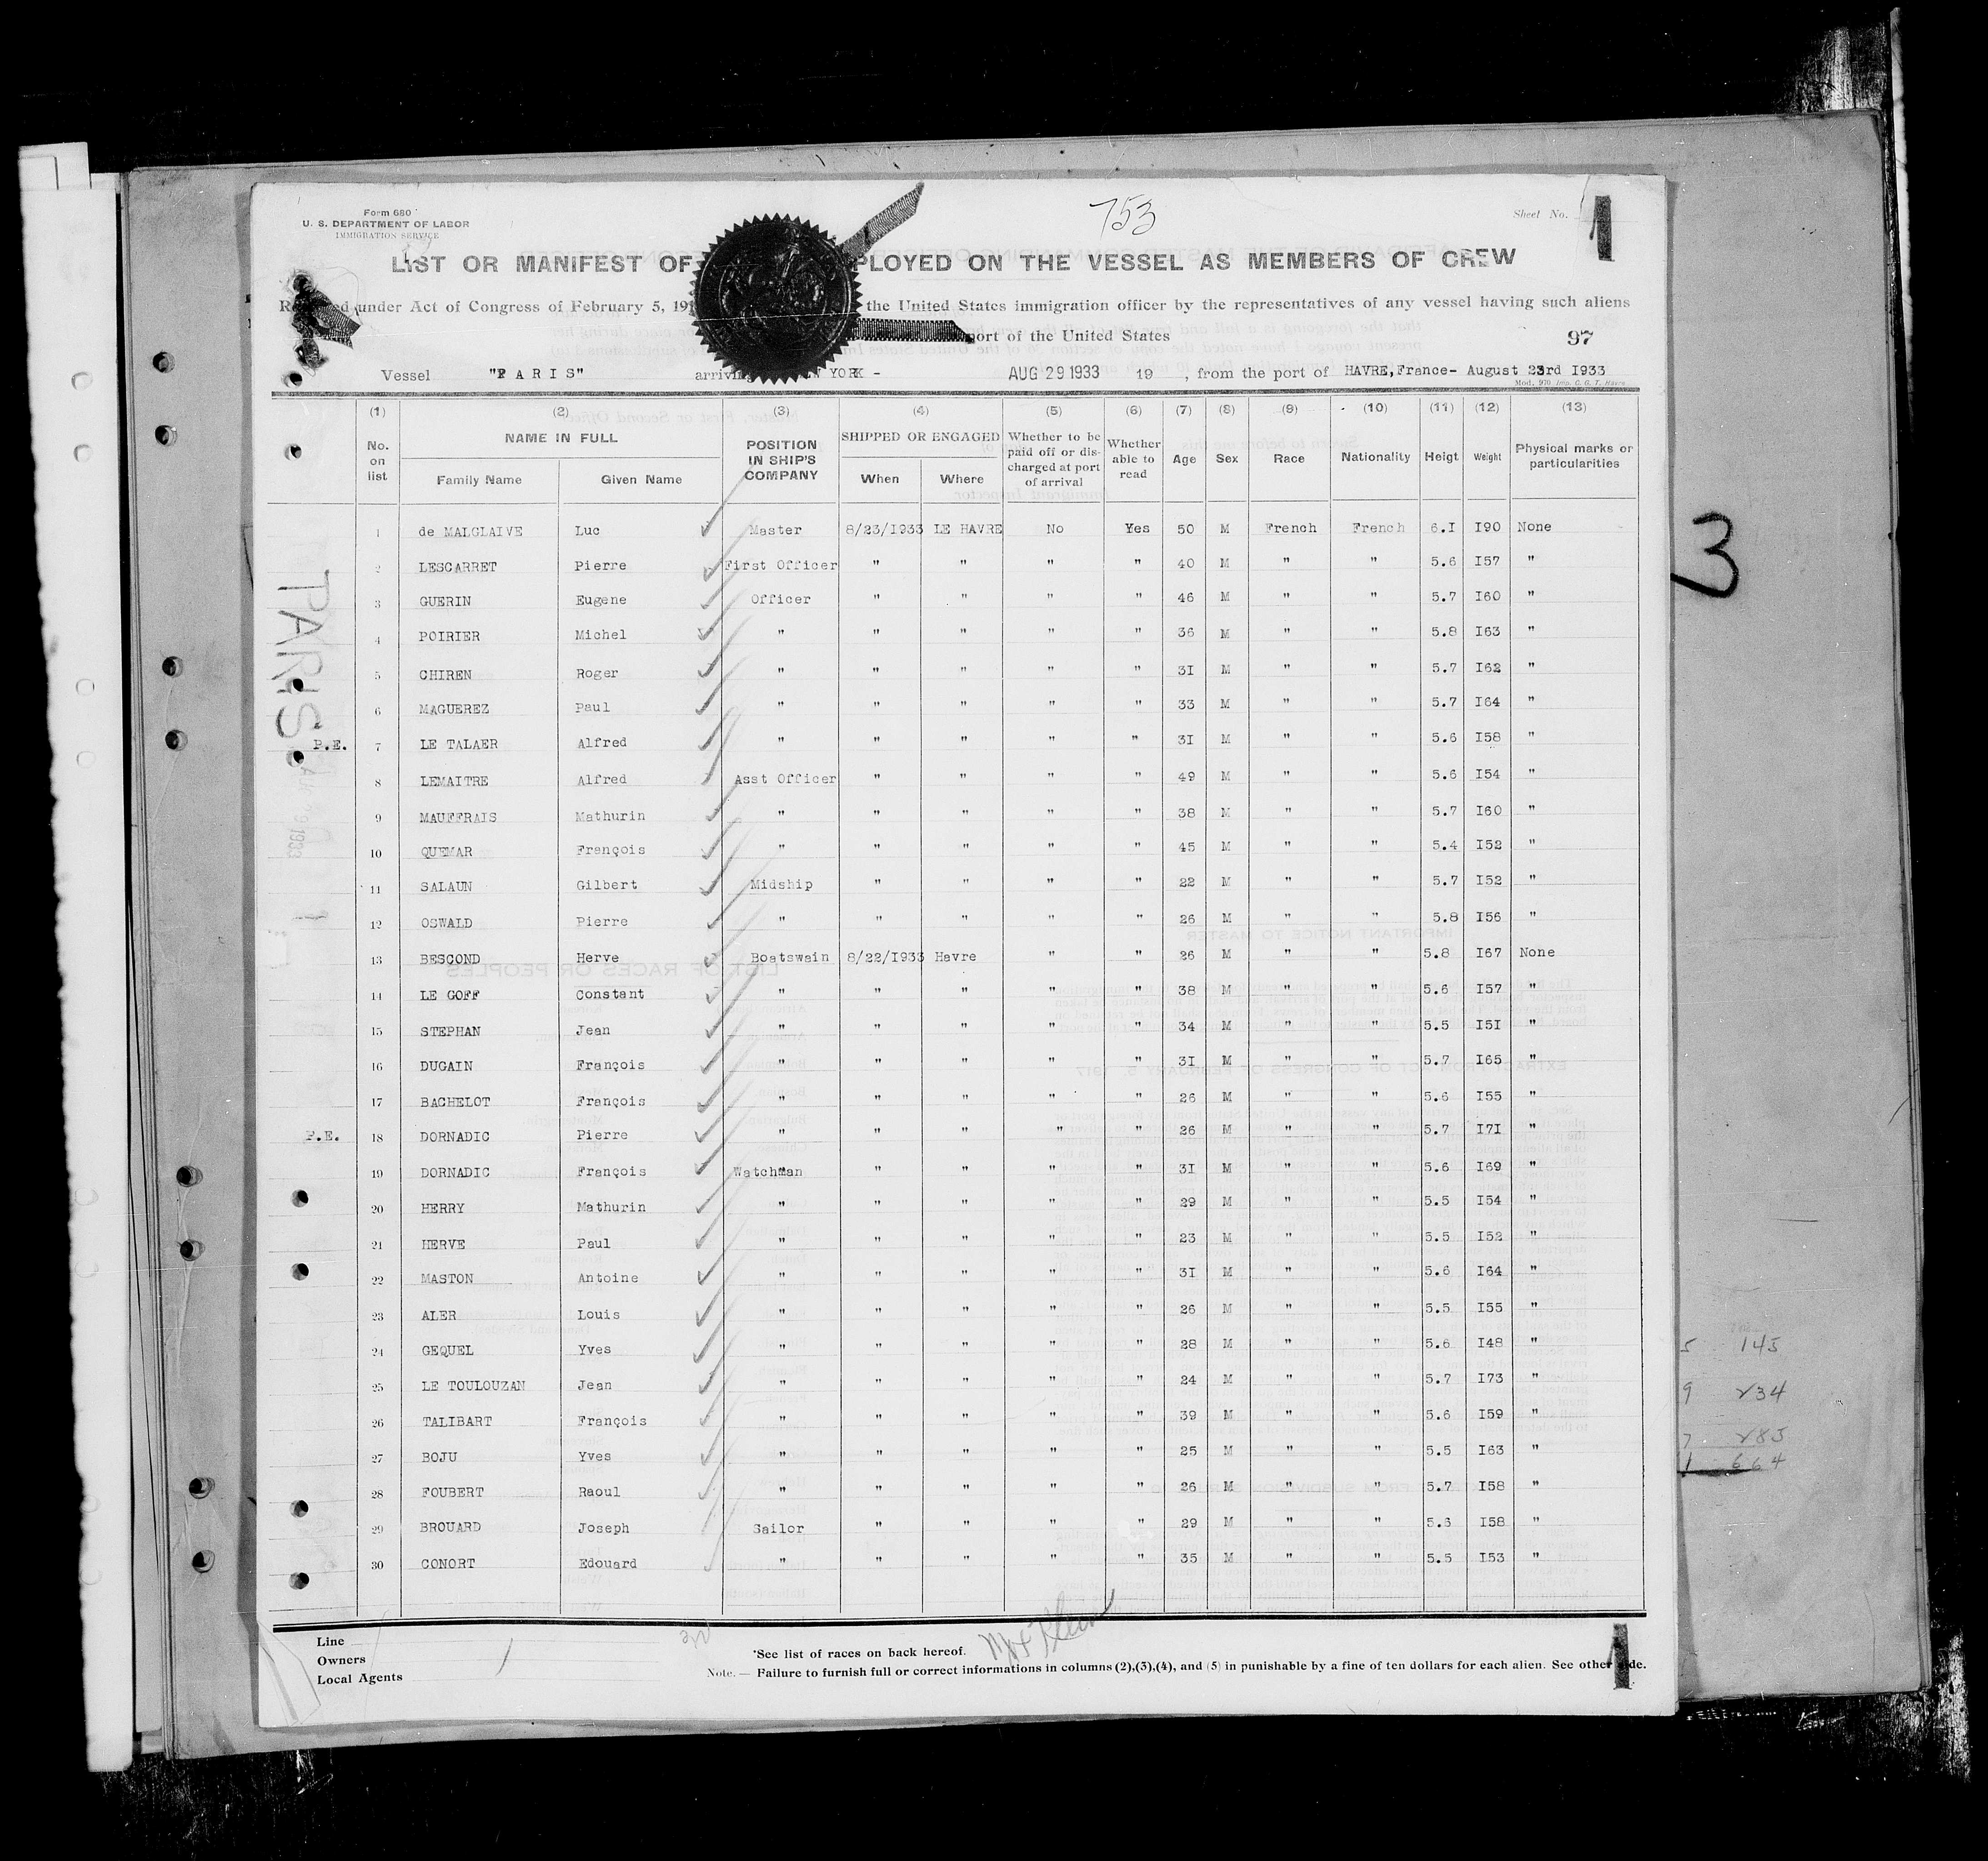 Form 680
U. S. DEPARTMENT OF LABOR
IMMIGRATION SERVICE
753
Sheet No. 1
1
LIST OR MANIFEST OF PLOYED ON THE VESSEL AS MEMBERS OF CREW
under Act of Congress of February 5, 19 the United States immigration officer by the representatives of any vessel having such aliens
ort of the United States
97
Vessel "PARIS" arriving YORK - AUG 29 1933 19 , from the port of HAVRE,France- August 23rd I933
Mod. 970 Imp. C. G. T. Havre
(1) (2) (3) (4) (5) (6) (7) (8) (9) (10) (11) (12) (13)
No. on list NAME IN FULL Family Name Given Name POSITION IN SHIP'S COMPANY SHIPPED OR ENGAGED When Where Whether to be paid off or discharged at port of arrival Whether able to read Age Sex Race Nationality Heigt Weight Physical marks or particularities
1 de MALGLAIVE Luc Master 8/23/I933 LE HAVRE No Yes 50 M French French 6.I I90 None
2 LESCARRET Pierre First Officer " " " " 40 M " " 5.6 I57 "
3 GUERIN Eugene Officer " " " " 46 M " " 5.7 I60 "
4 POIRIER Michel " " " " " 36 M " " 5.8 I63 "
5 CHIREN Roger " " " " " 3I M " " 5.7 I62 "
6 MAGUEREZ Paul " " " " " 33 M " " 5.7 I64 "
P.E. 7 LE TALAER Alfred " " " " " 3I M " " 5.6 I58 "
8 LEMAITRE Alfred Asst Officer " " " " 49 M " " 5.6 I54 "
9 MAUFFRAIS Mathurin " " " " " 38 M " " 5.7 I60 "
10 QUEMAR François " " " " " 45 M " " 5.4 I52 "
11 SALAUN Gilbert Midship " " " " 22 M " " 5.7 I52 "
12 OSWALD Pierre " " " " " 26 M " " 5.8 I56 "
13 BESCOND Herve Boatswain 8/22/I933 Havre " " 26 M " " 5.8 I67 None
14 LE GOFF Constant " " " " " 38 M " " 5.6 I57 "
15 STEPHAN Jean " " " " " 34 M " " 5.5 I5I "
16 DUGAIN François " " " " " 3I M " " 5.7 I65 "
17 BACHELOT François " " " " " 26 M " " 5.6 I55 "
P.E. 18 DORNADIC Pierre " " " " " 26 M " " 5.7 I7I "
19 DORNADIC François Watchman " " " " 3I M " " 5.6 I69 "
20 HERRY Mathurin " " " " " 29 M " " 5.5 I54 "
21 HERVE Paul " " " " " 23 M " " 5.5 I52 "
22 MASTON Antoine " " " " " 3I M " " 5.6 I64 "
23 ALER Louis " " " " " 26 M " " 5.5 I55 "
24 GEQUEL Yves " " " " " 28 M " " 5.6 I48 "
25 LE TOULOUZAN Jean " " " " " 24 M " " 5.7 I73 "
26 TALIBART François " " " " " 39 M " " 5.6 I59 "
27 BOJU Yves " " " " " 25 M " " 5.5 I63 "
28 FOUBERT Raoul " " " " " 26 M " " 5.7 I58 "
29 BROUARD Joseph Sailor " " " " 29 M " " 5.3 I58 "
30 CONORT Edouard " " " " " 35 M " " 5.5 I53 "
PARIS
3
5 145
9 234
7 285
1 664
Line
Owners
Local Agents
*See list of races on back hereof.
Note. — Failure to furnish full or correct informations in columns (2),(3),(4), and (5) in punishable by a fine of ten dollars for each alien. See other side.
1